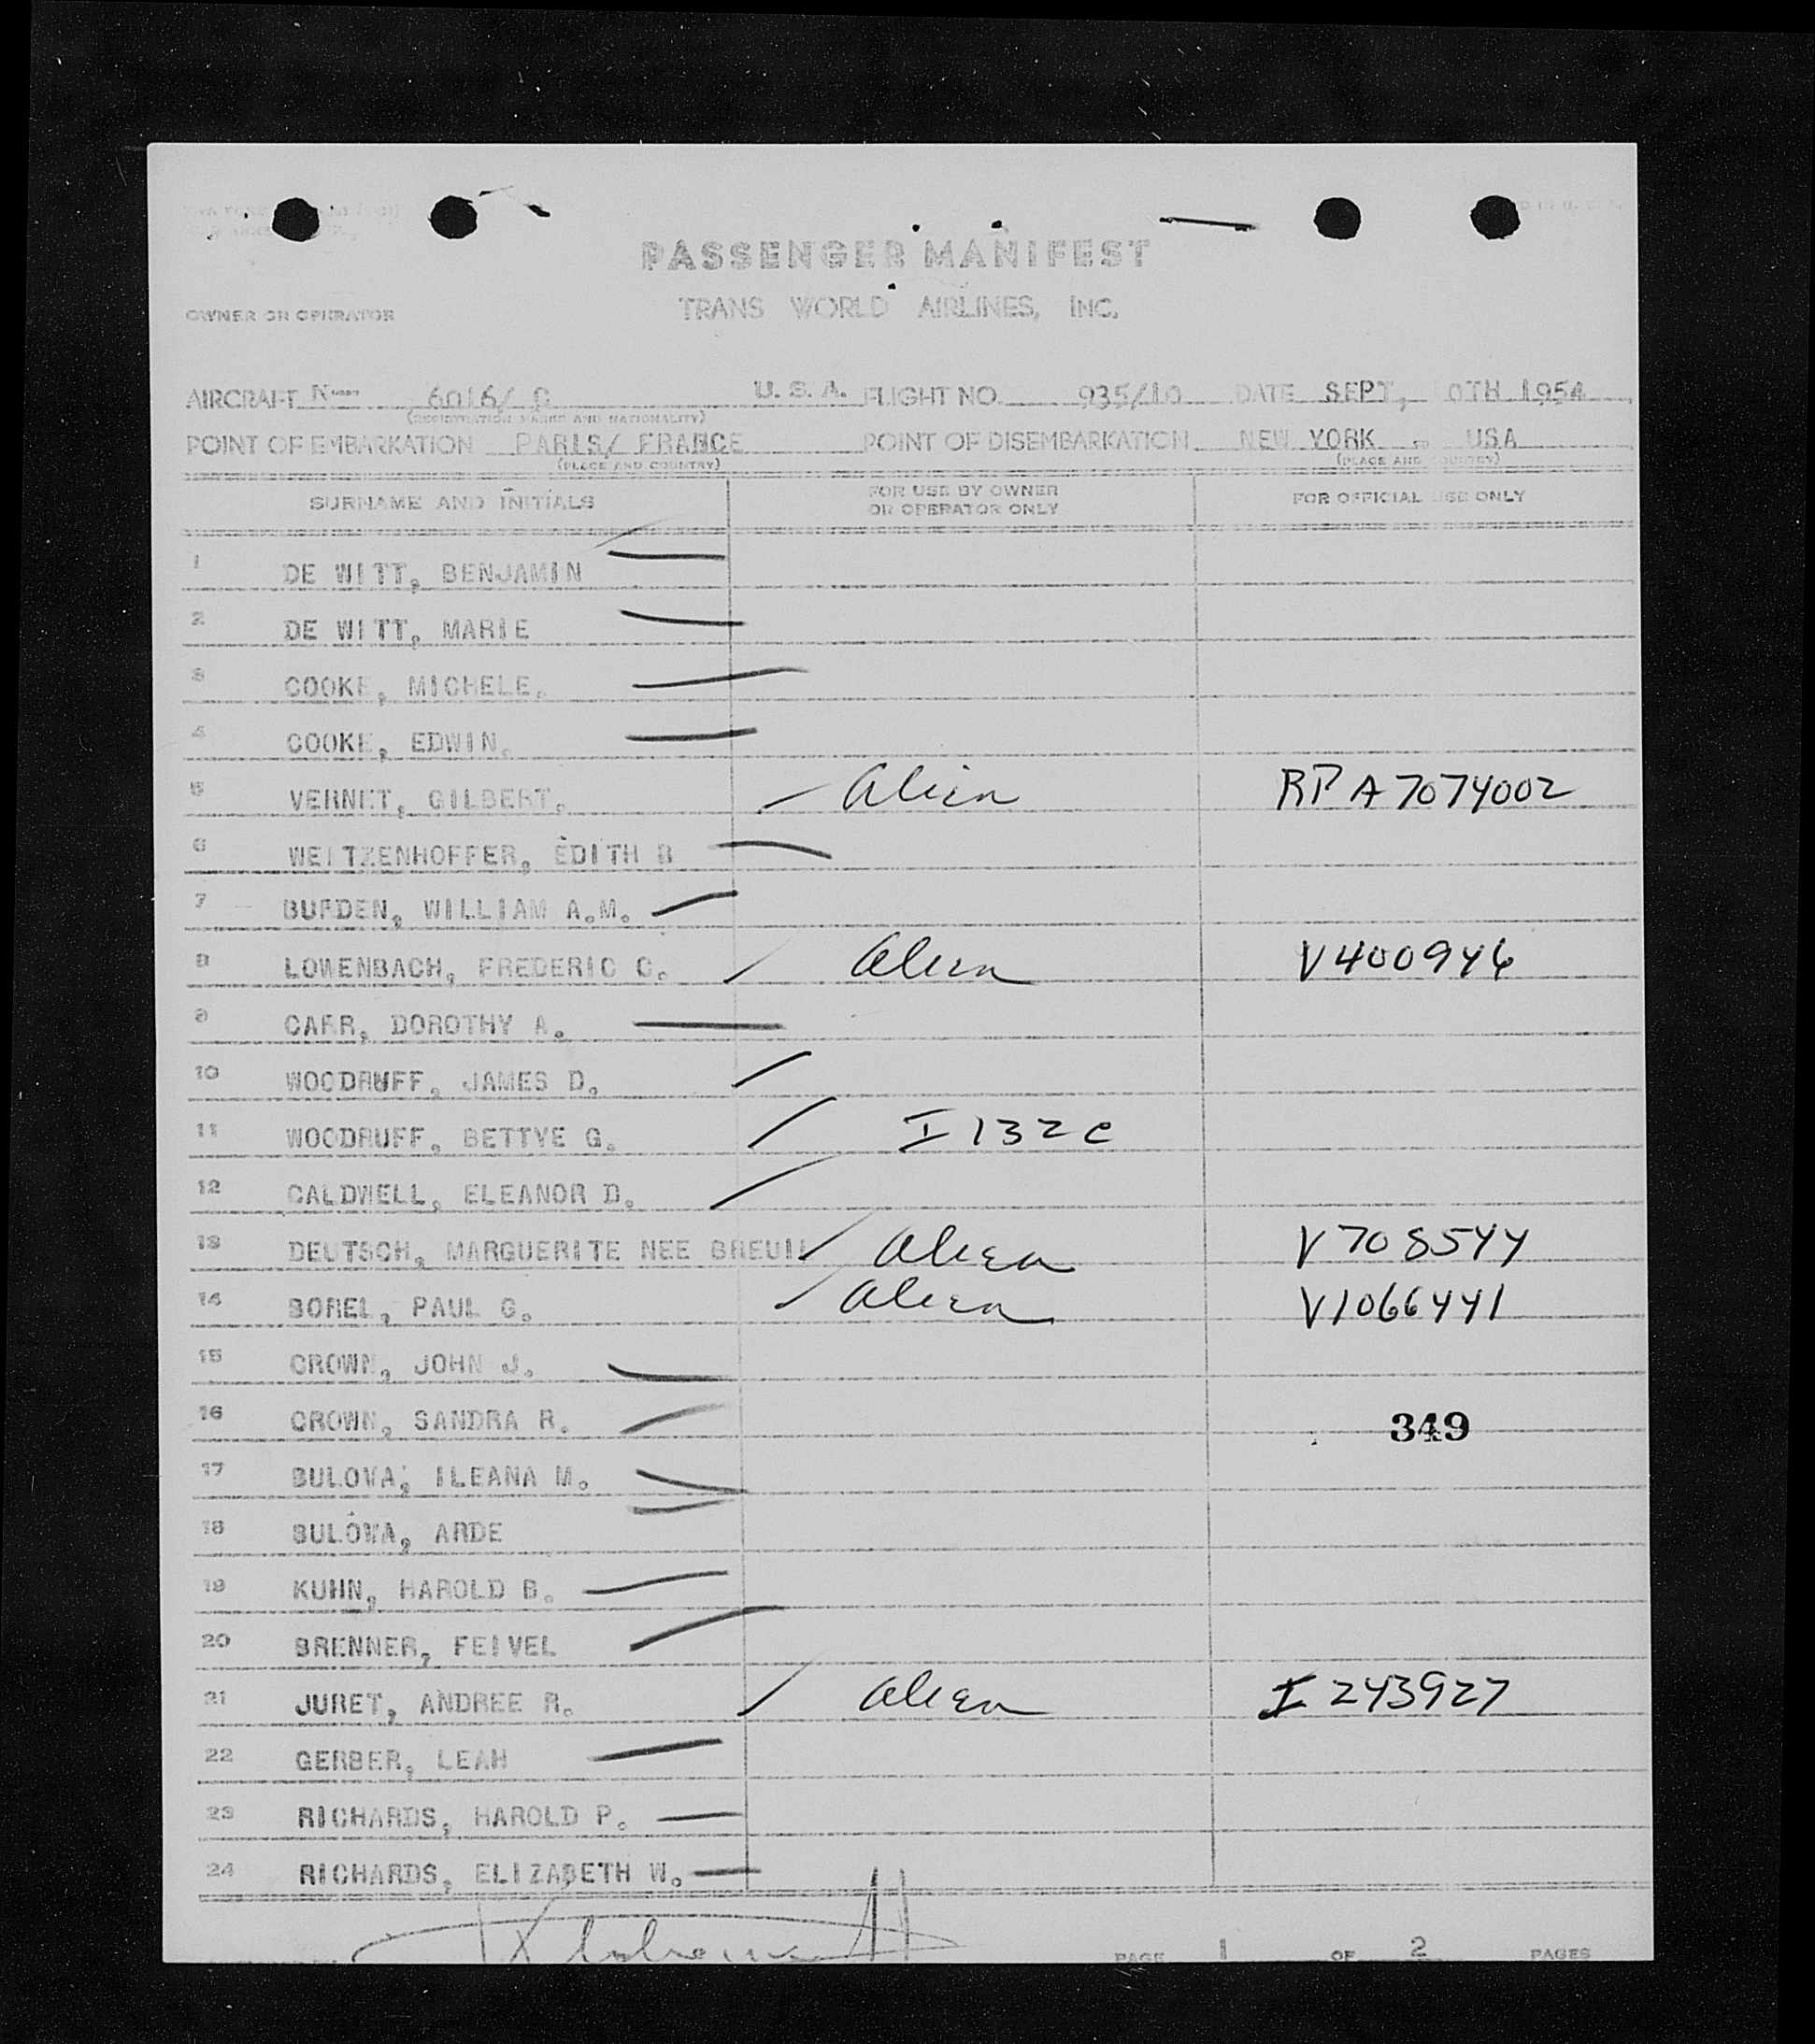 PASSENGER MANIFEST
OWNER OR OPERATOR TRANS WORLD AIRLINES, INC.
AIRCRAFT N 6016/ C U.S.A. FLIGHT NO. 935/10 DATE SEPT, 0TH 1954
(REGISTRATION MARKS AND NATIONALITY)
POINT OF EMBARKATION PARIS/ FRANCE POINT OF DISEMBARKATION NEW YORK - USA
(PLACE AND COUNTRY) (PLACE AND COUNTRY)
SURNAME AND INITIALS FOR USE BY OWNER OR OPERATOR ONLY FOR OFFICIAL USE ONLY
1 DE WITT, BENJAMIN
2 DE WITT, MARIE
3 COOKE, MICHELE.
4 COOKE, EDWIN.
5 VERNET, GILBERT. Alien RP A7074002
6 WEITZENHOFFER, EDITH B
7 BURDEN, WILLIAM A.M.
8 LOWENBACH, FREDERIC C. Alien V400946
9 CARR, DOROTHY A.
10 WOODRUFF, JAMES D.
11 WOODRUFF, BETTYE G. I 132 c
12 CALDWELL, ELEANOR D.
13 DEUTSCH, MARGUERITE NEE BREUIL Alien V708544
14 BOREL, PAUL G. Alien V1066441
15 CROWN, JOHN J.
16 CROWN, SANDRA R. 349
17 BULOVA, ILEANA M.
18 BULOVA, ARDE
19 KUHN, HAROLD B.
20 BRENNER, FEIVEL
21 JURET, ANDREE R. Alien I 243927
22 GERBER, LEAH
23 RICHARDS, HAROLD P.
24 RICHARDS, ELIZABETH W.
PAGE 1 OF 2 PAGES